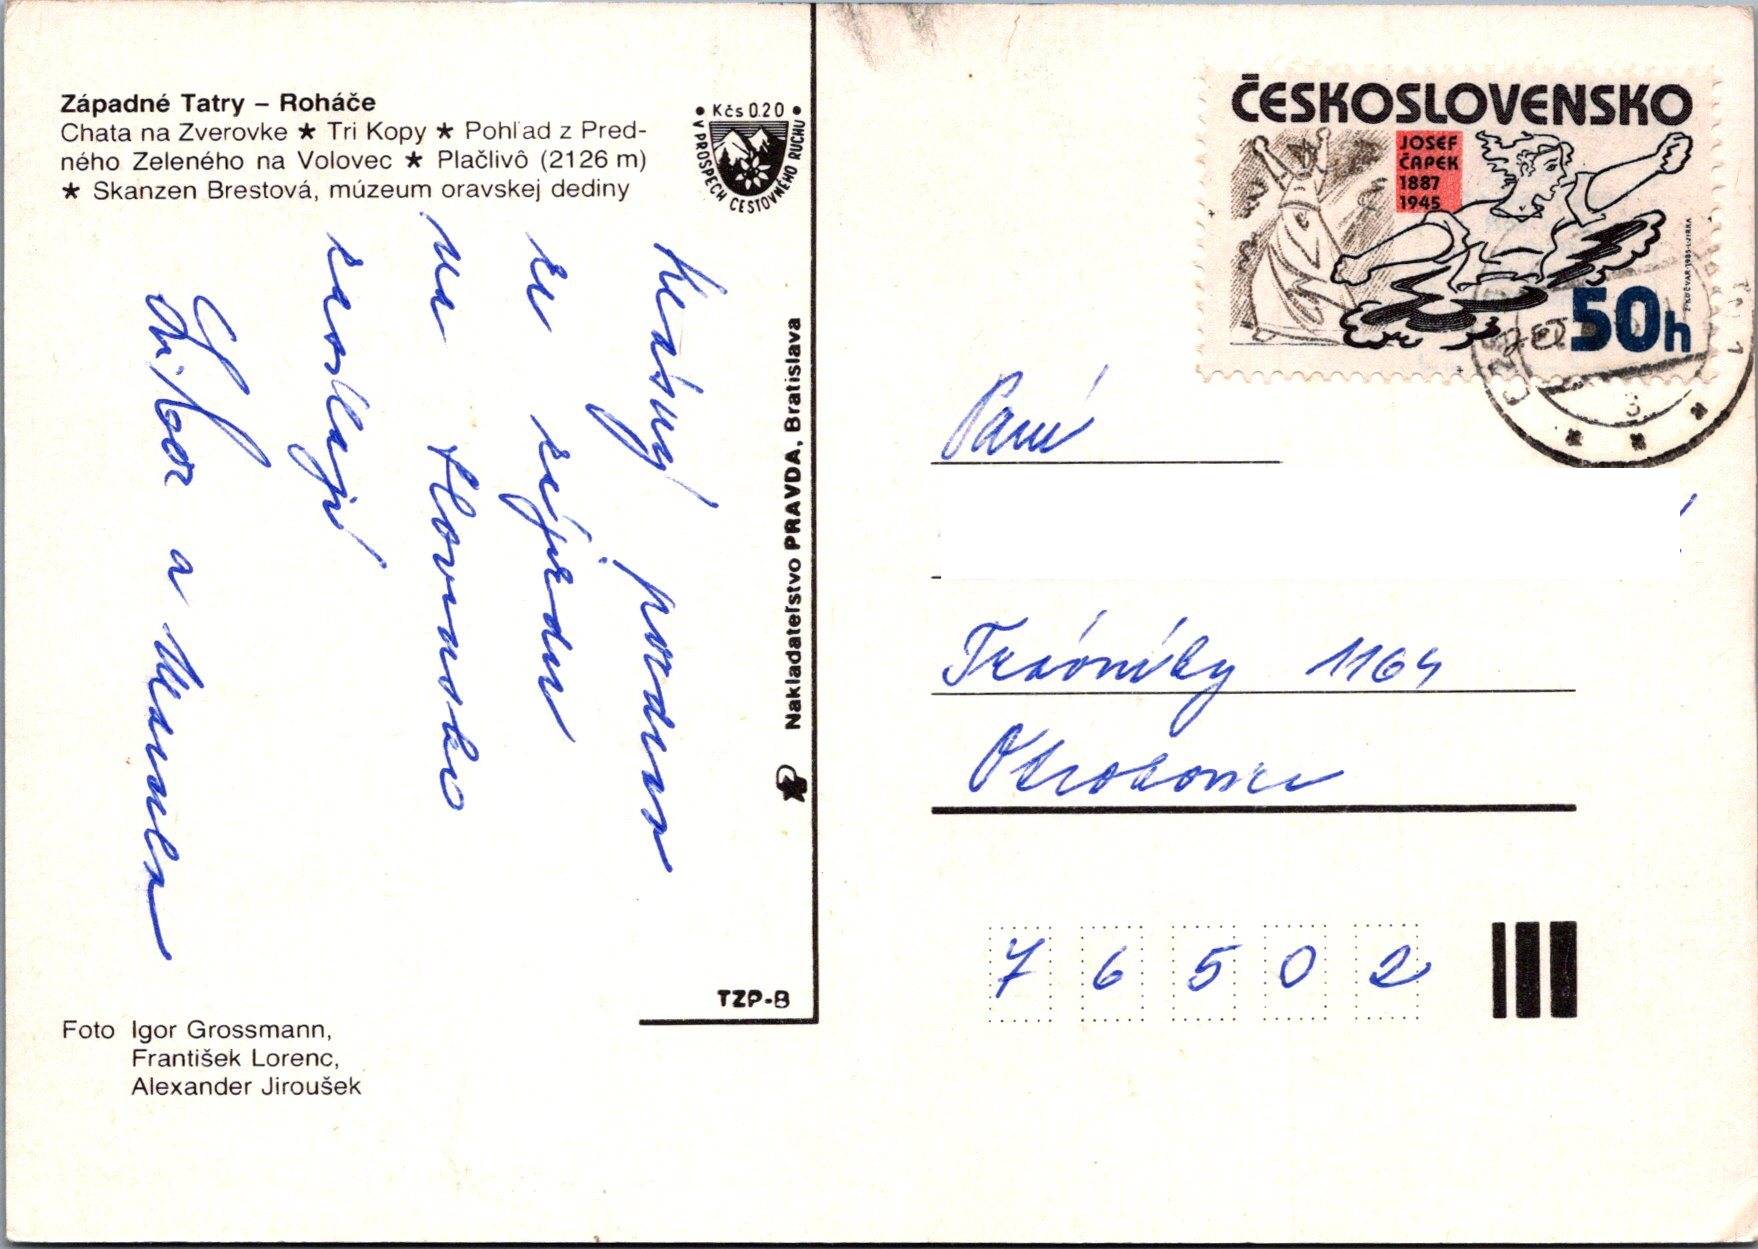 Západné Tatry – Roháče
Chata na Zverovke ★ Tri Kopy ★ Pohľad z Pred-
ného Zeleného na Volovec ★ Plačlivô (2126 m)
★ Skanzen Brestová, múzeum oravskej dediny
Kčs 0.20
V PROSPECH CESTOVNÉHO RUCHU
Krásný pozdrav
ze zájezdu
na Slovensko
zasílají
Libor a Zdeněk
Nakladateľstvo PRAVDA, Bratislava
TZP-B
Foto Igor Grossmann,
František Lorenc,
Alexander Jiroušek
ČESKOSLOVENSKO
JOSEF
ČAPEK
1887
1945
50h
Paní
Trávníky 1164
Otrokovice
76502